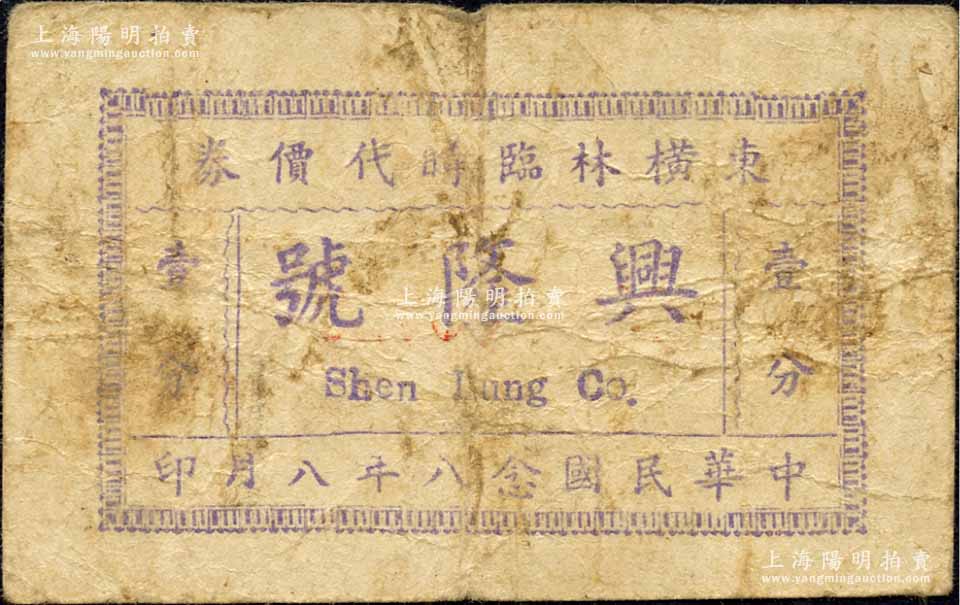 上海陽明拍賣
www.yangmingauction.com
上海陽明拍賣
www.yangmingauction.com
東橫林臨時代價券
壹分
興隆號
壹分
上海陽明拍賣
www.yangmingauction.com
Shen Lung Co.
中華民國念八年八月印
上海陽明拍賣
www.yangmingauction.com